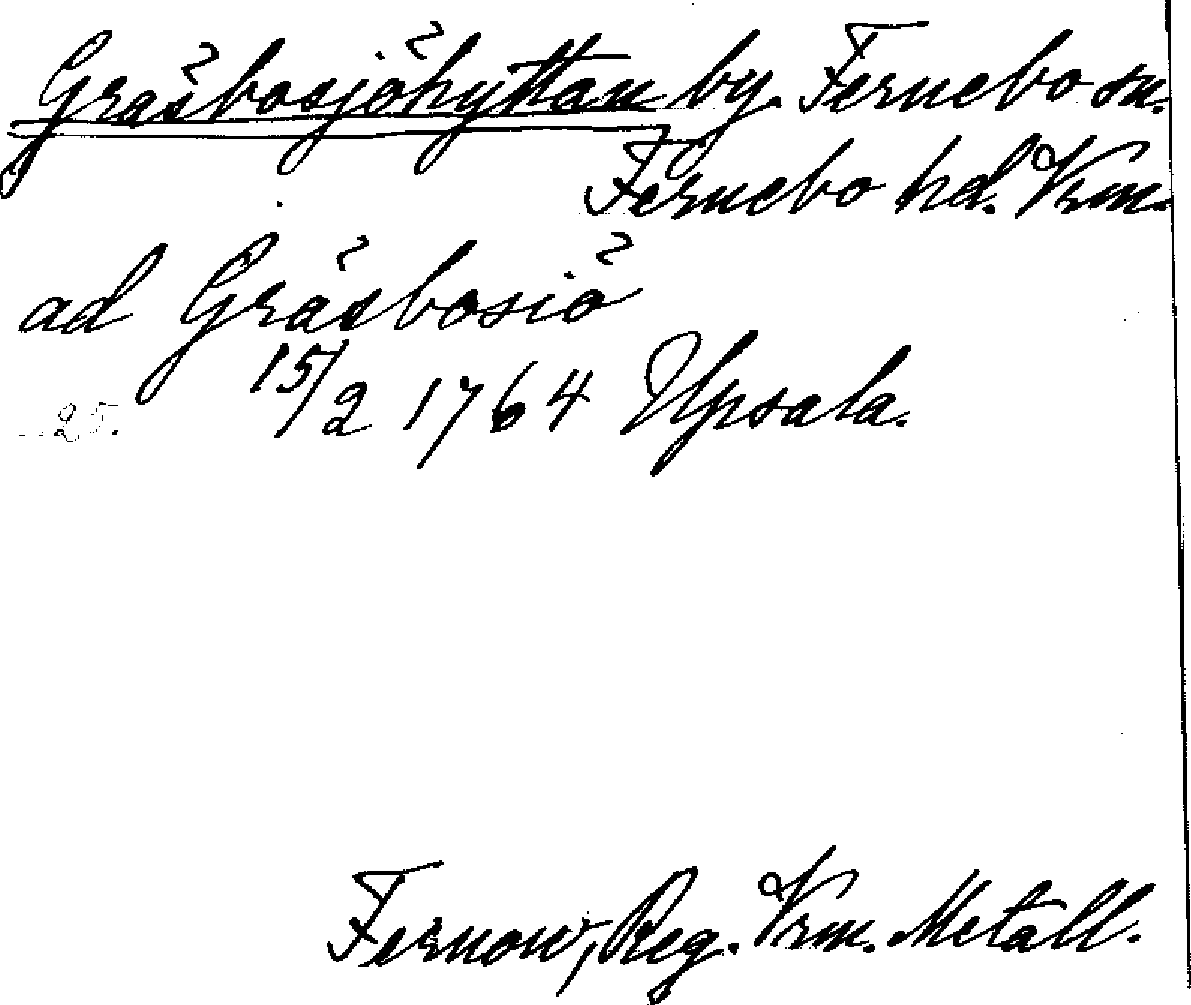 Gräsbosjöhyttan by. Fernebo sn.
Fernebo hd. Vrm.
ad Gräsbosiö
15/2 1764 Upsala.
25.
Fernow, Reg. Vrm. Metall.